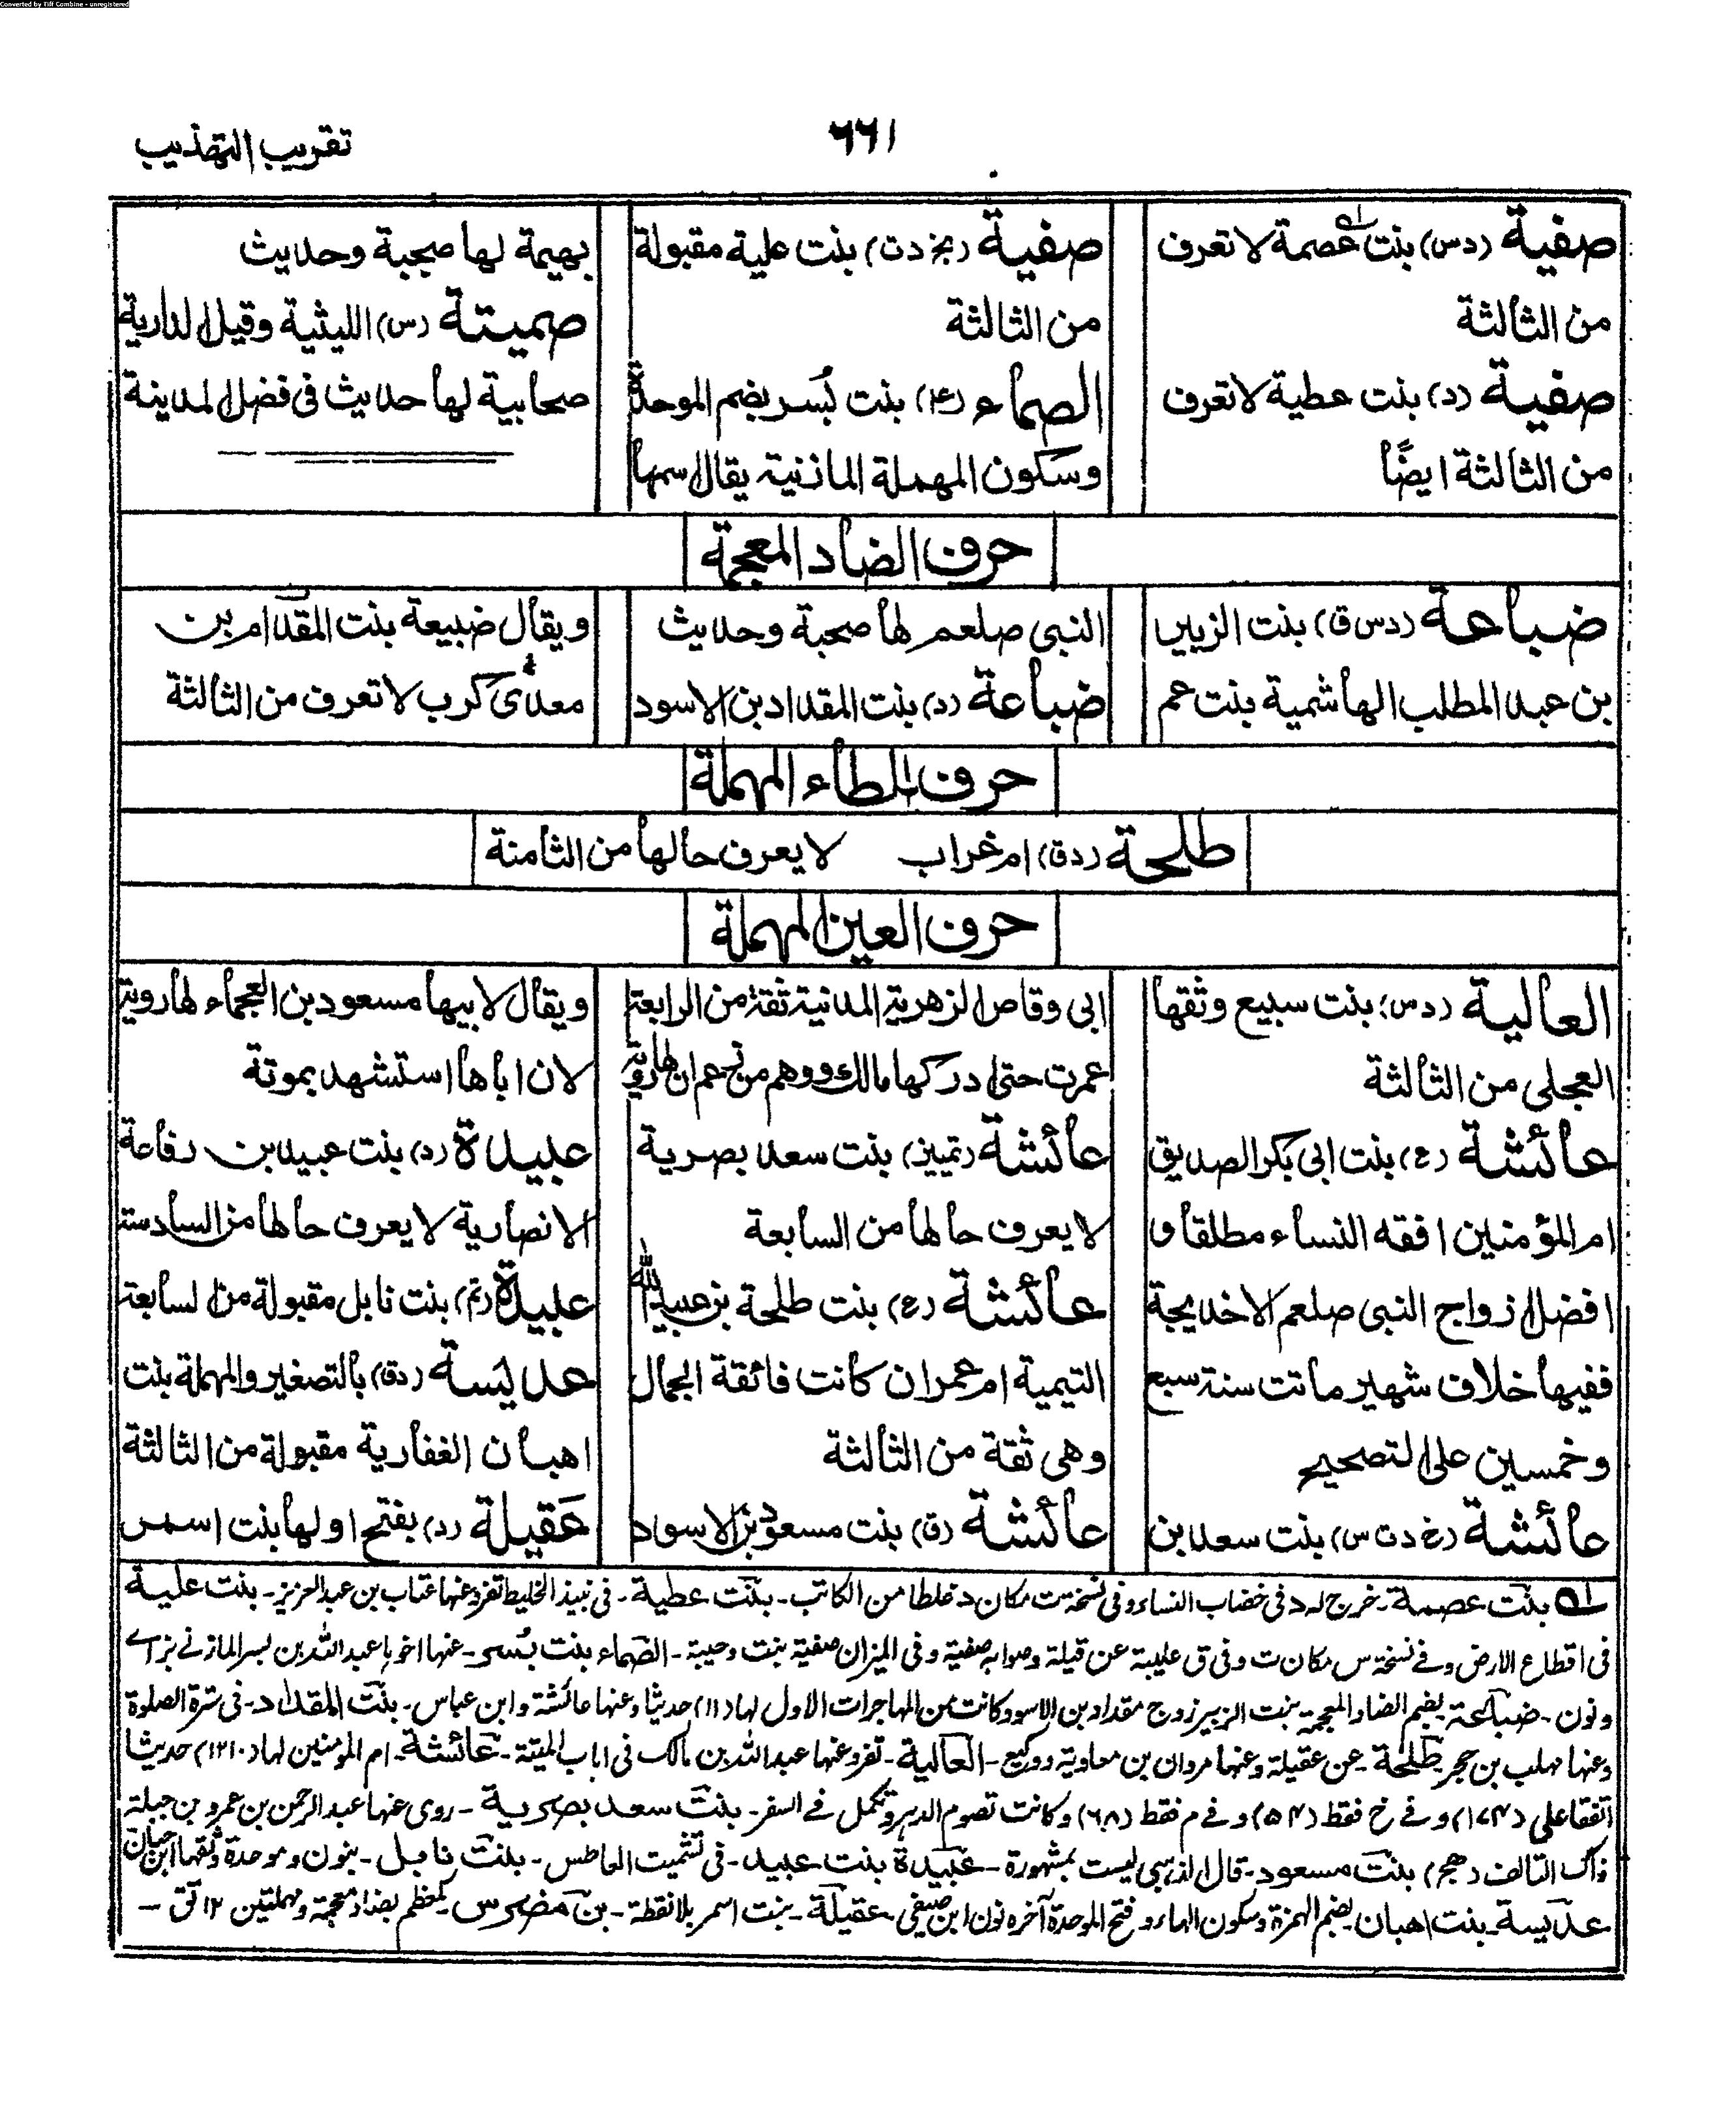 Converted by Tiff Combine - unregistered
٦٦١
تقريب التهذيب
صفية (دس) بنت عصمة لا تعرف
من الثالثة
صفية (د) بنت عطية لا تعرف
من الثالثة ايضًا
صفية (بخ دت) بنت علية مقبولة
من الثالثة
الصماء (عم) بنت بُسر بضم الموحدة
وسكون المهملة المازنية يقال اسمها
بهيمة لها صحبة وحديث
صميتة (س) الليثية وقيل الدارية
صحابية لها حديث في فضل المدينة
حرف الضاد المعجمة
ضباعة (دس ق) بنت الزبير
بن عبد المطلب الهاشمية بنت عم
النبى صلعم لها صحبة وحديث
ضباعة (د) بنت المقداد بن الاسود
ويقال ضبيعة بنت المقدام بن
معدى كرب لا تعرف من الثالثة
حرف الطاء المهملة
طلحة (دق) ام غراب لا يعرف حالها من الثامنة
حرف العين المهملة
العالية (دس) بنت سبيع وثقها
العجلى من الثالثة
عائشة (ع) بنت ابى بكر الصديق
ام المؤمنين افقه النساء مطلقا و
افضل ازواج النبى صلعم الا خديجة
ففيها خلاف شهير ماتت سنة سبع
وخمسين على التصحيح
عائشة (خ دت س) بنت سعد بن
ابى وقاص الزهرية المدنية ثقة من الرابعة
عمرت حتى ادركها مالك ووهم من زعم ان لها رؤية
عائشة (تمييز) بنت سعد بصرية
لا يعرف حالها من السابعة
عائشة (ع) بنت طلحة بن عبيد الله
التيمية ام عمران كانت فائقة الجمال
وهى ثقة من الثالثة
عائشة (ق) بنت مسعود بن الاسود
ويقال لابيها مسعود بن العجماء لها روية
لان اباها استشهد بموتة
عبيدة (د) بنت عبيد بن رفاعة
الانصارية لا يعرف حالها من السادسة
عبيدة (تم) بنت نابل مقبولة من السابعة
عديسة (دق) بالتصغير والمهملة بنت
اهبان الغفارية مقبولة من الثالثة
عَقيلة (د) بفتح اولها بنت اسمر
بنت عصمة۔ خرج له د فى خضاب النساء وفى نسخة ت مكان د غلطا من الكاتب۔ بنت عطية۔ فى نبيذ الخليط تفرد عنها عتاب بن عبد العزيز۔ بنت علية
فى اقطاع الارض وفے نسخة س مكان ت وفى ق عليبة عن قيلة وصوابه صفية وفى الميزان صفية بنت دحيبة۔ الصماء بنت بُسر۔ عنها اخوها عبد الله بن بسر المازنے بزاے
ونون۔ ضباعة بضم الضاد المعجمة بنت الزبير زوج مقداد بن الاسود وكانت من المهاجرات الاول لها (١١) حديثا وعنها عائشة وابن عباس۔ بنت المقداد۔ فى سترة الصلوة
وعنها مهلب بن حجر۔ طلحة۔ عن عقيلة وعنها مروان بن معاوية ووكيع۔ العالية۔ تفرد عنها عبد الله بن مالك فى اهاب الميتة۔ عائشة۔ ام المومنين لها (١٢١٠) حديثا
اتفقا على (١٧٤) وفے خ فقط (٥٤) وفے م فقط (٦٨) وكانت تصوم الدهر وتكمل فے السفر۔ بنت سعد بصرية۔ روى عنها عبد الرحمن بن عمرو بن جبلة
ذاك التالف (هجر) بنت مسعود۔ قال الذهبى ليست بمشهورة۔ عبيدة بنت عبيد۔ فى تشميت العاطس۔ بنت نابل۔ بنون وموحدة وثقها ابن حبان
عديسة۔ بنت اهبان۔ بضم الهمزة وسكون الهاء وفتح الموحدة آخره نون ابن صيفى۔ عقيلة۔ بنت اسمر بلا نقطة۔ بن مضرس۔ كمعظم بضاد معجمة ومهملتين ١٢ تق۔